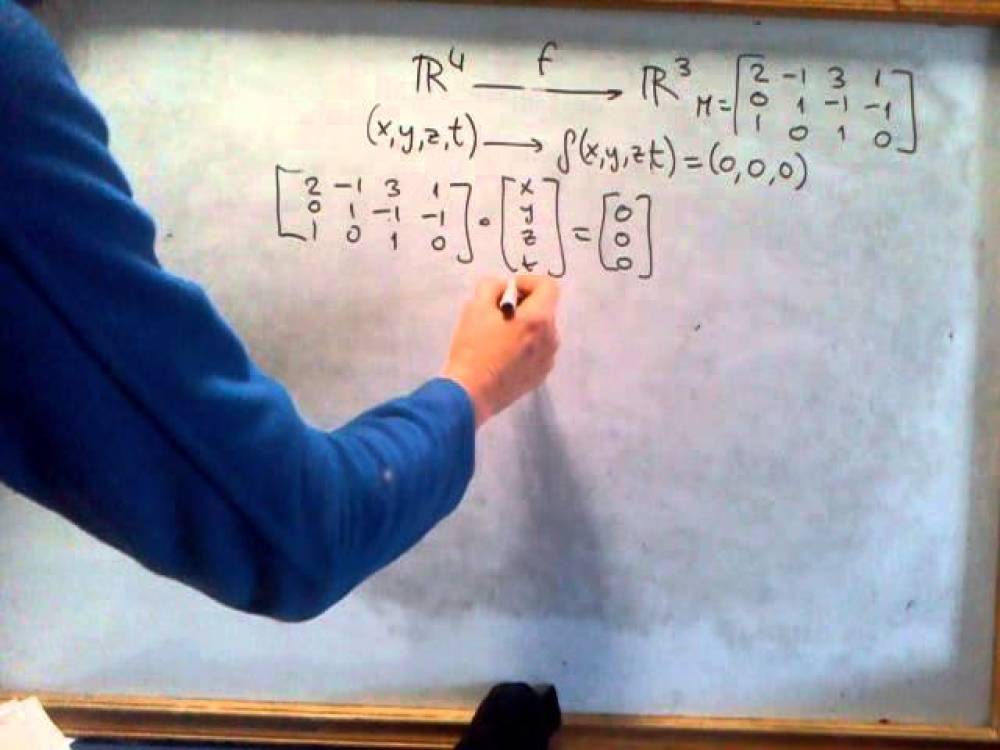 ℝ⁴ —f→ ℝ³ M = [2 -1 3 1
0 1 -1 -1
1 0 1 0]
(x,y,z,t) → f(x,y,zt) = (0,0,0)
[2 -1 3 1] [x] [0]
[0 1 -1 -1] · [y] = [0]
[1 0 1 0] [z] [0]
[t]